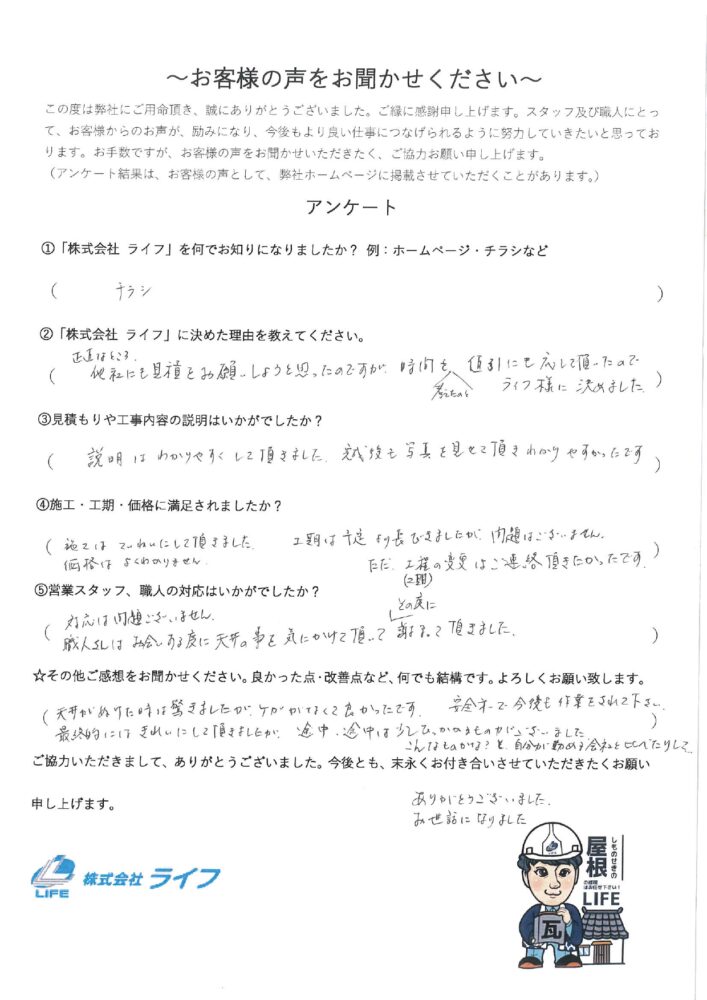 ～お客様の声をお聞かせください～
この度は弊社にご用命頂き、誠にありがとうございました。ご縁に感謝申し上げます。スタッフ及び職人にとっ
て、お客様からのお声が、励みになり、今後もより良い仕事につなげられるように努力していきたいと思ってお
ります。お手数ですが、お客様の声をお聞かせいただきたく、ご協力お願い申し上げます。
（アンケート結果は、お客様の声として、弊社ホームページに掲載させていただくことがあります。）
アンケート
①「株式会社 ライフ」を何でお知りになりましたか？ 例：ホームページ・チラシなど
（ チラシ ）
②「株式会社 ライフ」に決めた理由を教えてください。
正直なところ、
（ 他社にも見積をお願いしようと思ったのですが、時間を 値引にも応じて頂いたので
考えたのと ライフ様に決めました。 ）
③見積もりや工事内容の説明はいかがでしたか？
（ 説明はわかりやすくして頂きました。完成後も写真を見せて頂きわかりやすかったです ）
④施工・工期・価格に満足されましたか？
（ 施工はていねいにして頂きました。 工期は予定より長びきましたが、問題はございません。
価格はよくわかりません。 ただ、工程の変更はご連絡頂きたかったです。 ）
(工期)
⑤営業スタッフ、職人の対応はいかがでしたか？
（ 対応は問題ございません。 その度に
職人さんはお会いする度に天井の事を気にかけて頂いて 謝まって頂きました。 ）
☆その他ご感想をお聞かせください。良かった点・改善点など、何でも結構です。よろしくお願い致します。
（ 天井がぬけた時は驚きましたが、ケガがなくて良かったです。 安全第一で今後も作業をされて下さい。
最終的にはきれいにして頂きましたが、途中、途中は少しひっかかるものがございました。 ）
こんなものかな？と、自分が勤める会社と比べたりして
ご協力いただきまして、ありがとうございました。今後とも、末永くお付き合いさせていただきたくお願い
申し上げます。
ありがとうございました。
お世話になりました
LIFE 株式会社 ライフ
しものせきの
屋根
の修理
はお任せ下さい！
LIFE
瓦